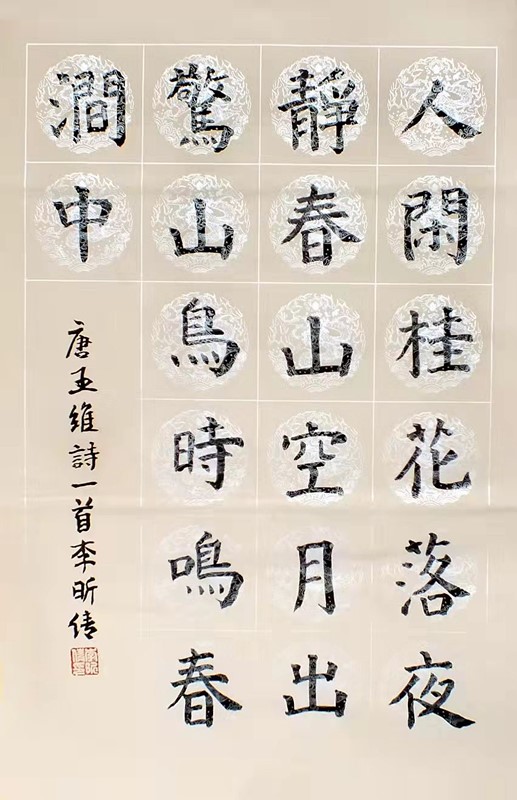 人閑桂花落夜
靜春山空月出
驚山鳥時鳴春
澗中
唐王維詩一首李昕倩